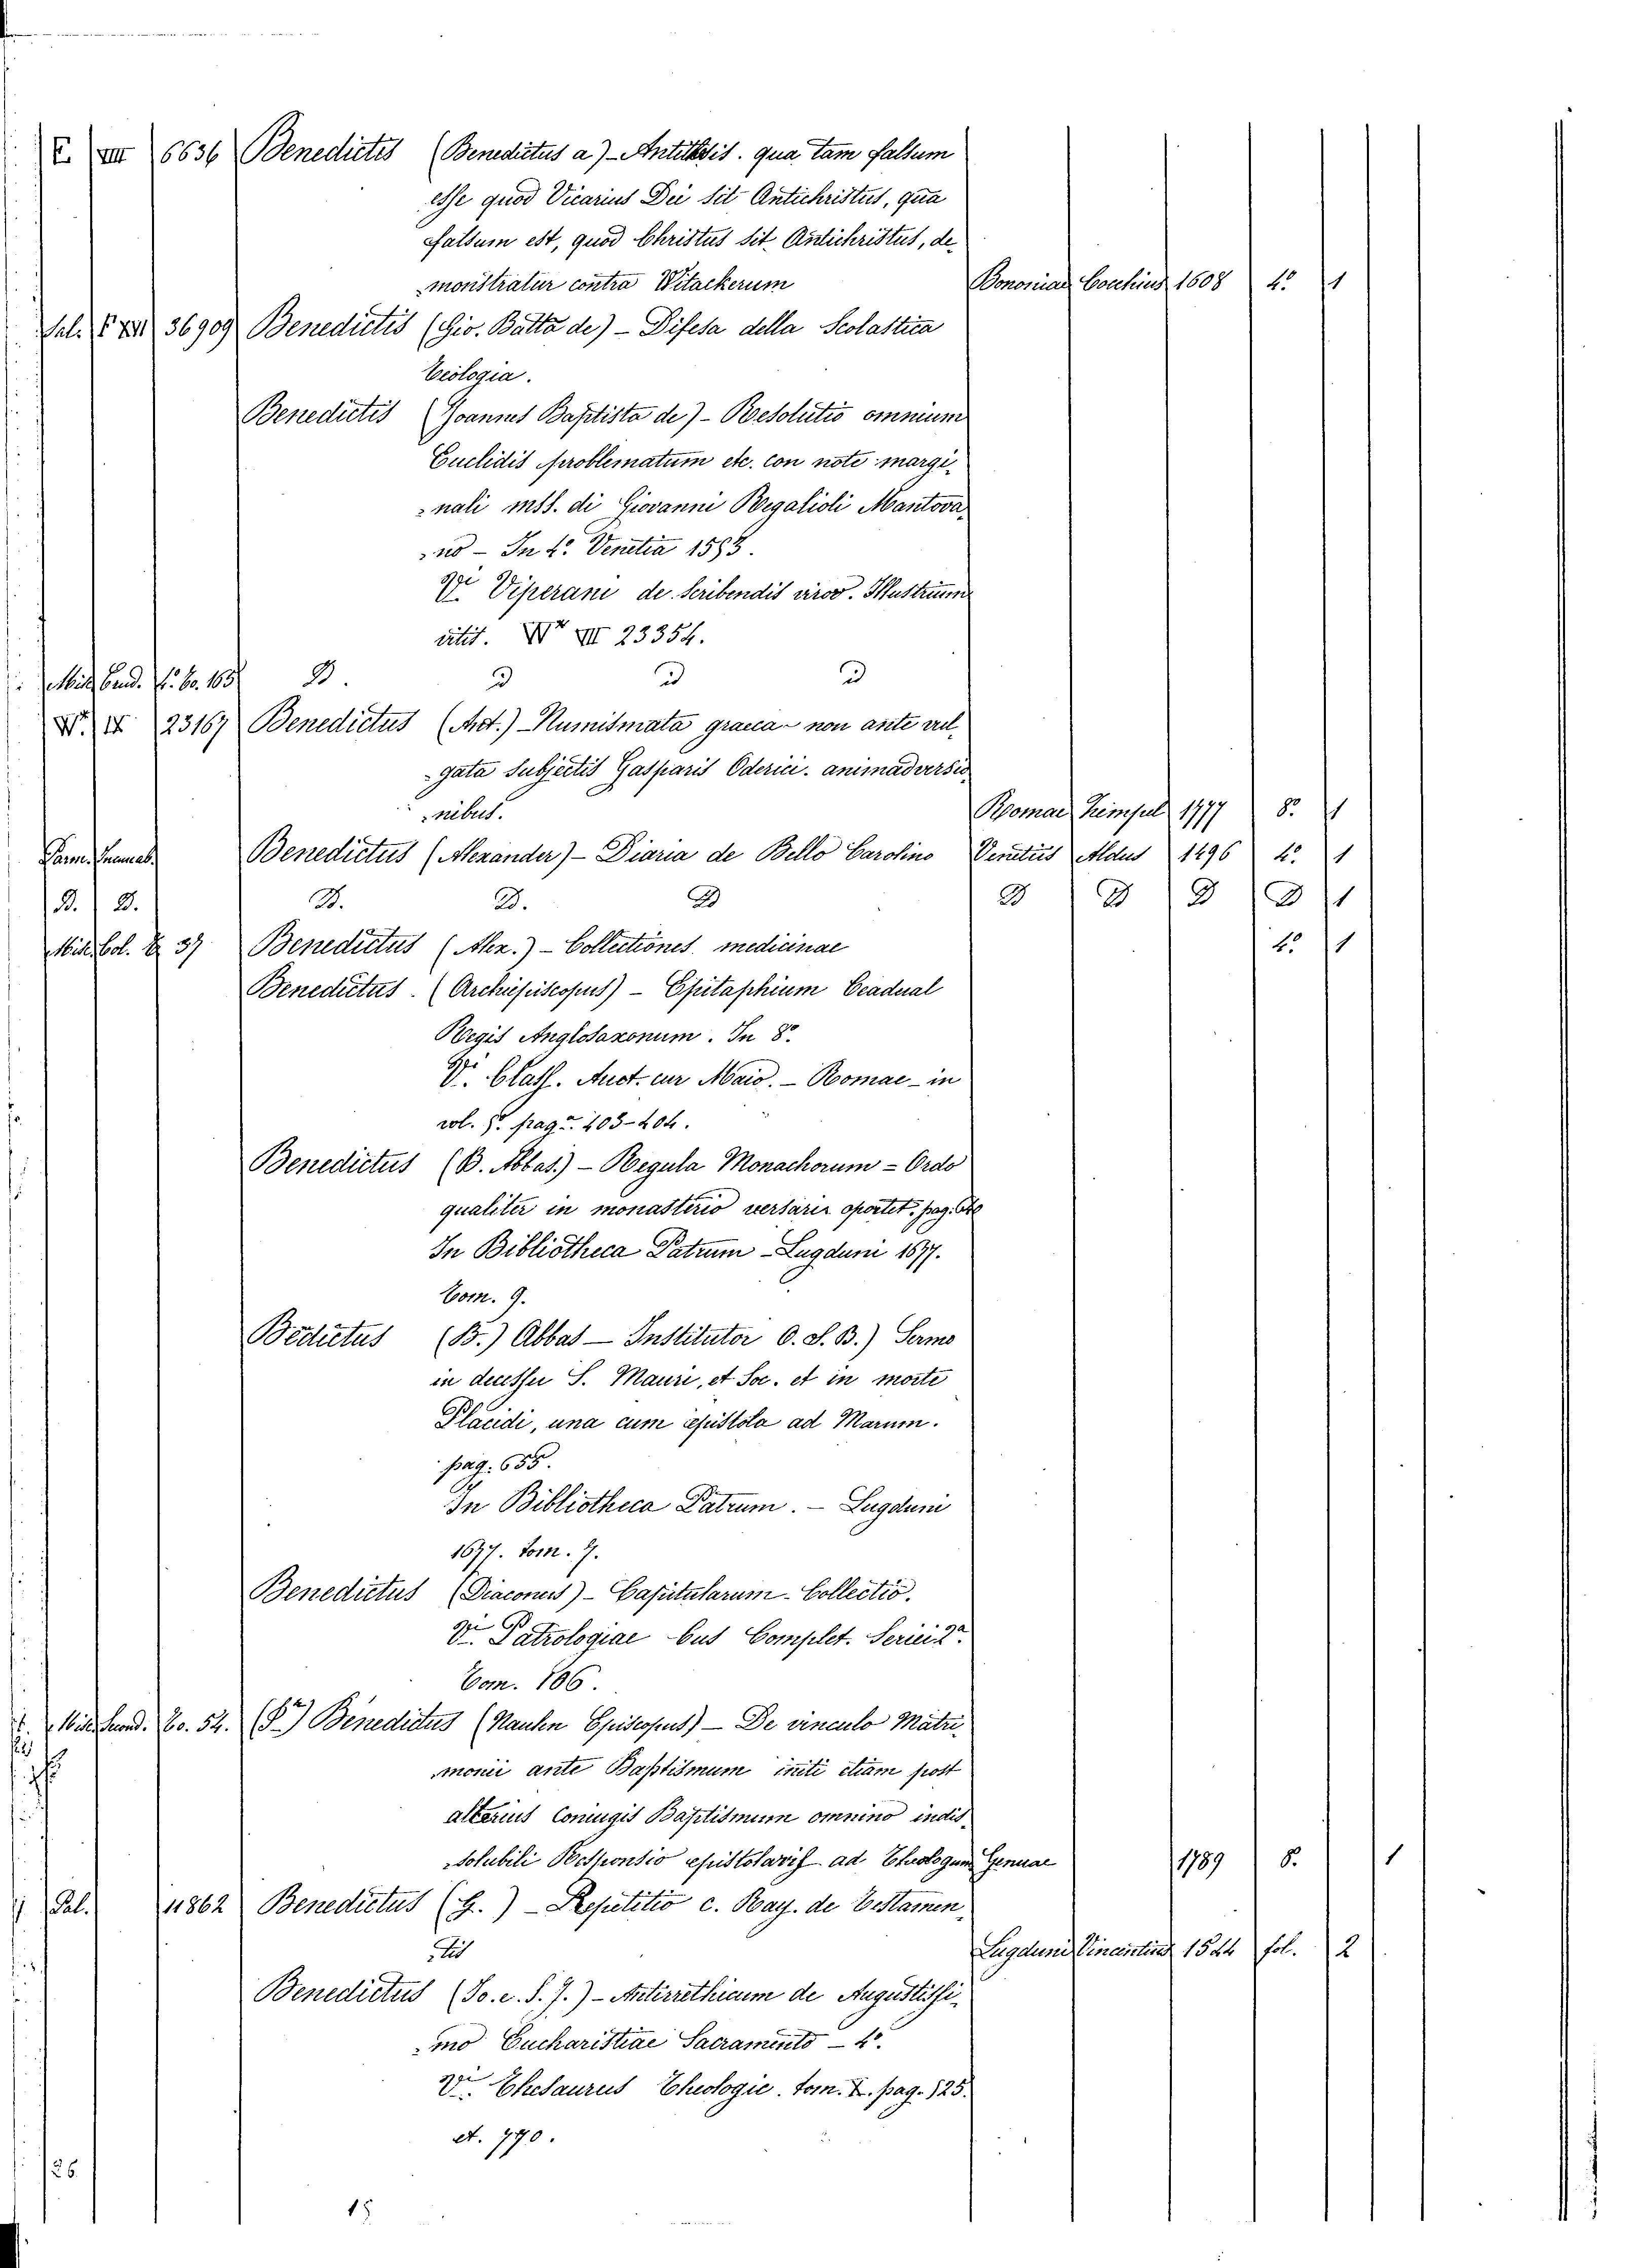 E. VIII 6636 Benedictis (Benedictus a) - Antithesis. qua tam falsum
esse quod Vicarius Dei sit Antichristus, qua
falsum est, quod Christus sit Antichristus, de
monstratur contra Witackerum Bononiae Cocchius 1608 4º 1
Sal. E XVI 36909 Benedictis (Gio. Batta de) - Difesa della Scolastica
Teologia.
Benedictis (Joannes Baptista de) - Resolutio omnium
Euclidis problematum etc. con note margi
=nali mss. di Giovanni Regalioli Mantova
no - In 4º Venetia 1553.
Vi Viperani de Scribendis viror. Illustrium
vitis. Wr VII 23354.
Misc. Bend. fº. Co. 165 D. D D D
Wr. IX 23167 Benedictus (Ant.) - Numismata graeca non ante vul
=gata subjectis Gasparis Oderici animadversio
nibus. Romae Zempel 1777 8º 1
Parm. Benedictus (Alexander) - Diaria de Bello Carolino Venetiis Aldus 1496 4º 1
D. D. D. D. D D D D D 1
Misc. Col. 37 Benedictus (Alex.) - Collectiones medicinae 4º 1
Benedictus. (Archiepiscopus) - Epitaphium Ceadual
Regis Anglosaxonum. In 8º.
Vi. Class. Auct. cur Maio. - Romae - in
vol. 5º. pag. 403-404.
Benedictus (B. Abbas.) - Regula Monachorum = Ordo
qualiter in monasterio versari oportet, pag.
In Bibliotheca Patrum - Lugduni 1677.
Tom. 9.
Bedictus (B.) Abbas - Institutor O. S. B.) Sermo
in decessu S. Mauri, et Soc. et in morte
Placidi, una cum epistola ad Marum.
pag. 655.
In Bibliotheca Patrum. - Lugduni
1677. tom. 7.
Benedictus (Diaconus) - Capitularum Collectio.
Vi. Patrologiae Cus Complet. Seriei 2ª
Tom. 106.
Misc. Second. Co. 54. (Sº) Benedictus (Naulen Episcopus) - De vinculo Matri
monii ante Baptismum initi etiam post
alterius Coniugis Baptismum omnino indis
solubili Responsio epistolaris ad Theologum Genuae 1789 8. 1
Pal. 11862 Benedictus (G.) - Repetitio c. Ray. de Testamen
tis Lugduni Vincentius 1544 fol. 2
Benedictus (Jo. e. S. J.) - Antirrethicum de Augustissi
mo Eucharistiae Sacramento - 4º.
Vi. Thesaurus Theologic. tom. X. pag. 725.
et. 770.
126
15